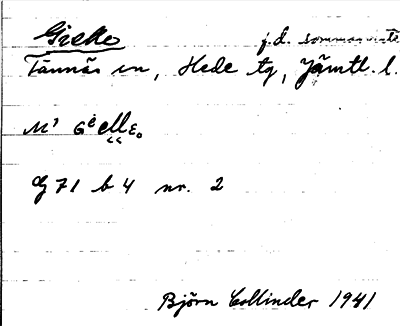 Gielle j.d. sommarviste
Tännäs sn, Hede tg, Jämtl. l.
G 71 b 4 nr. 2
Björn Collinder 1941